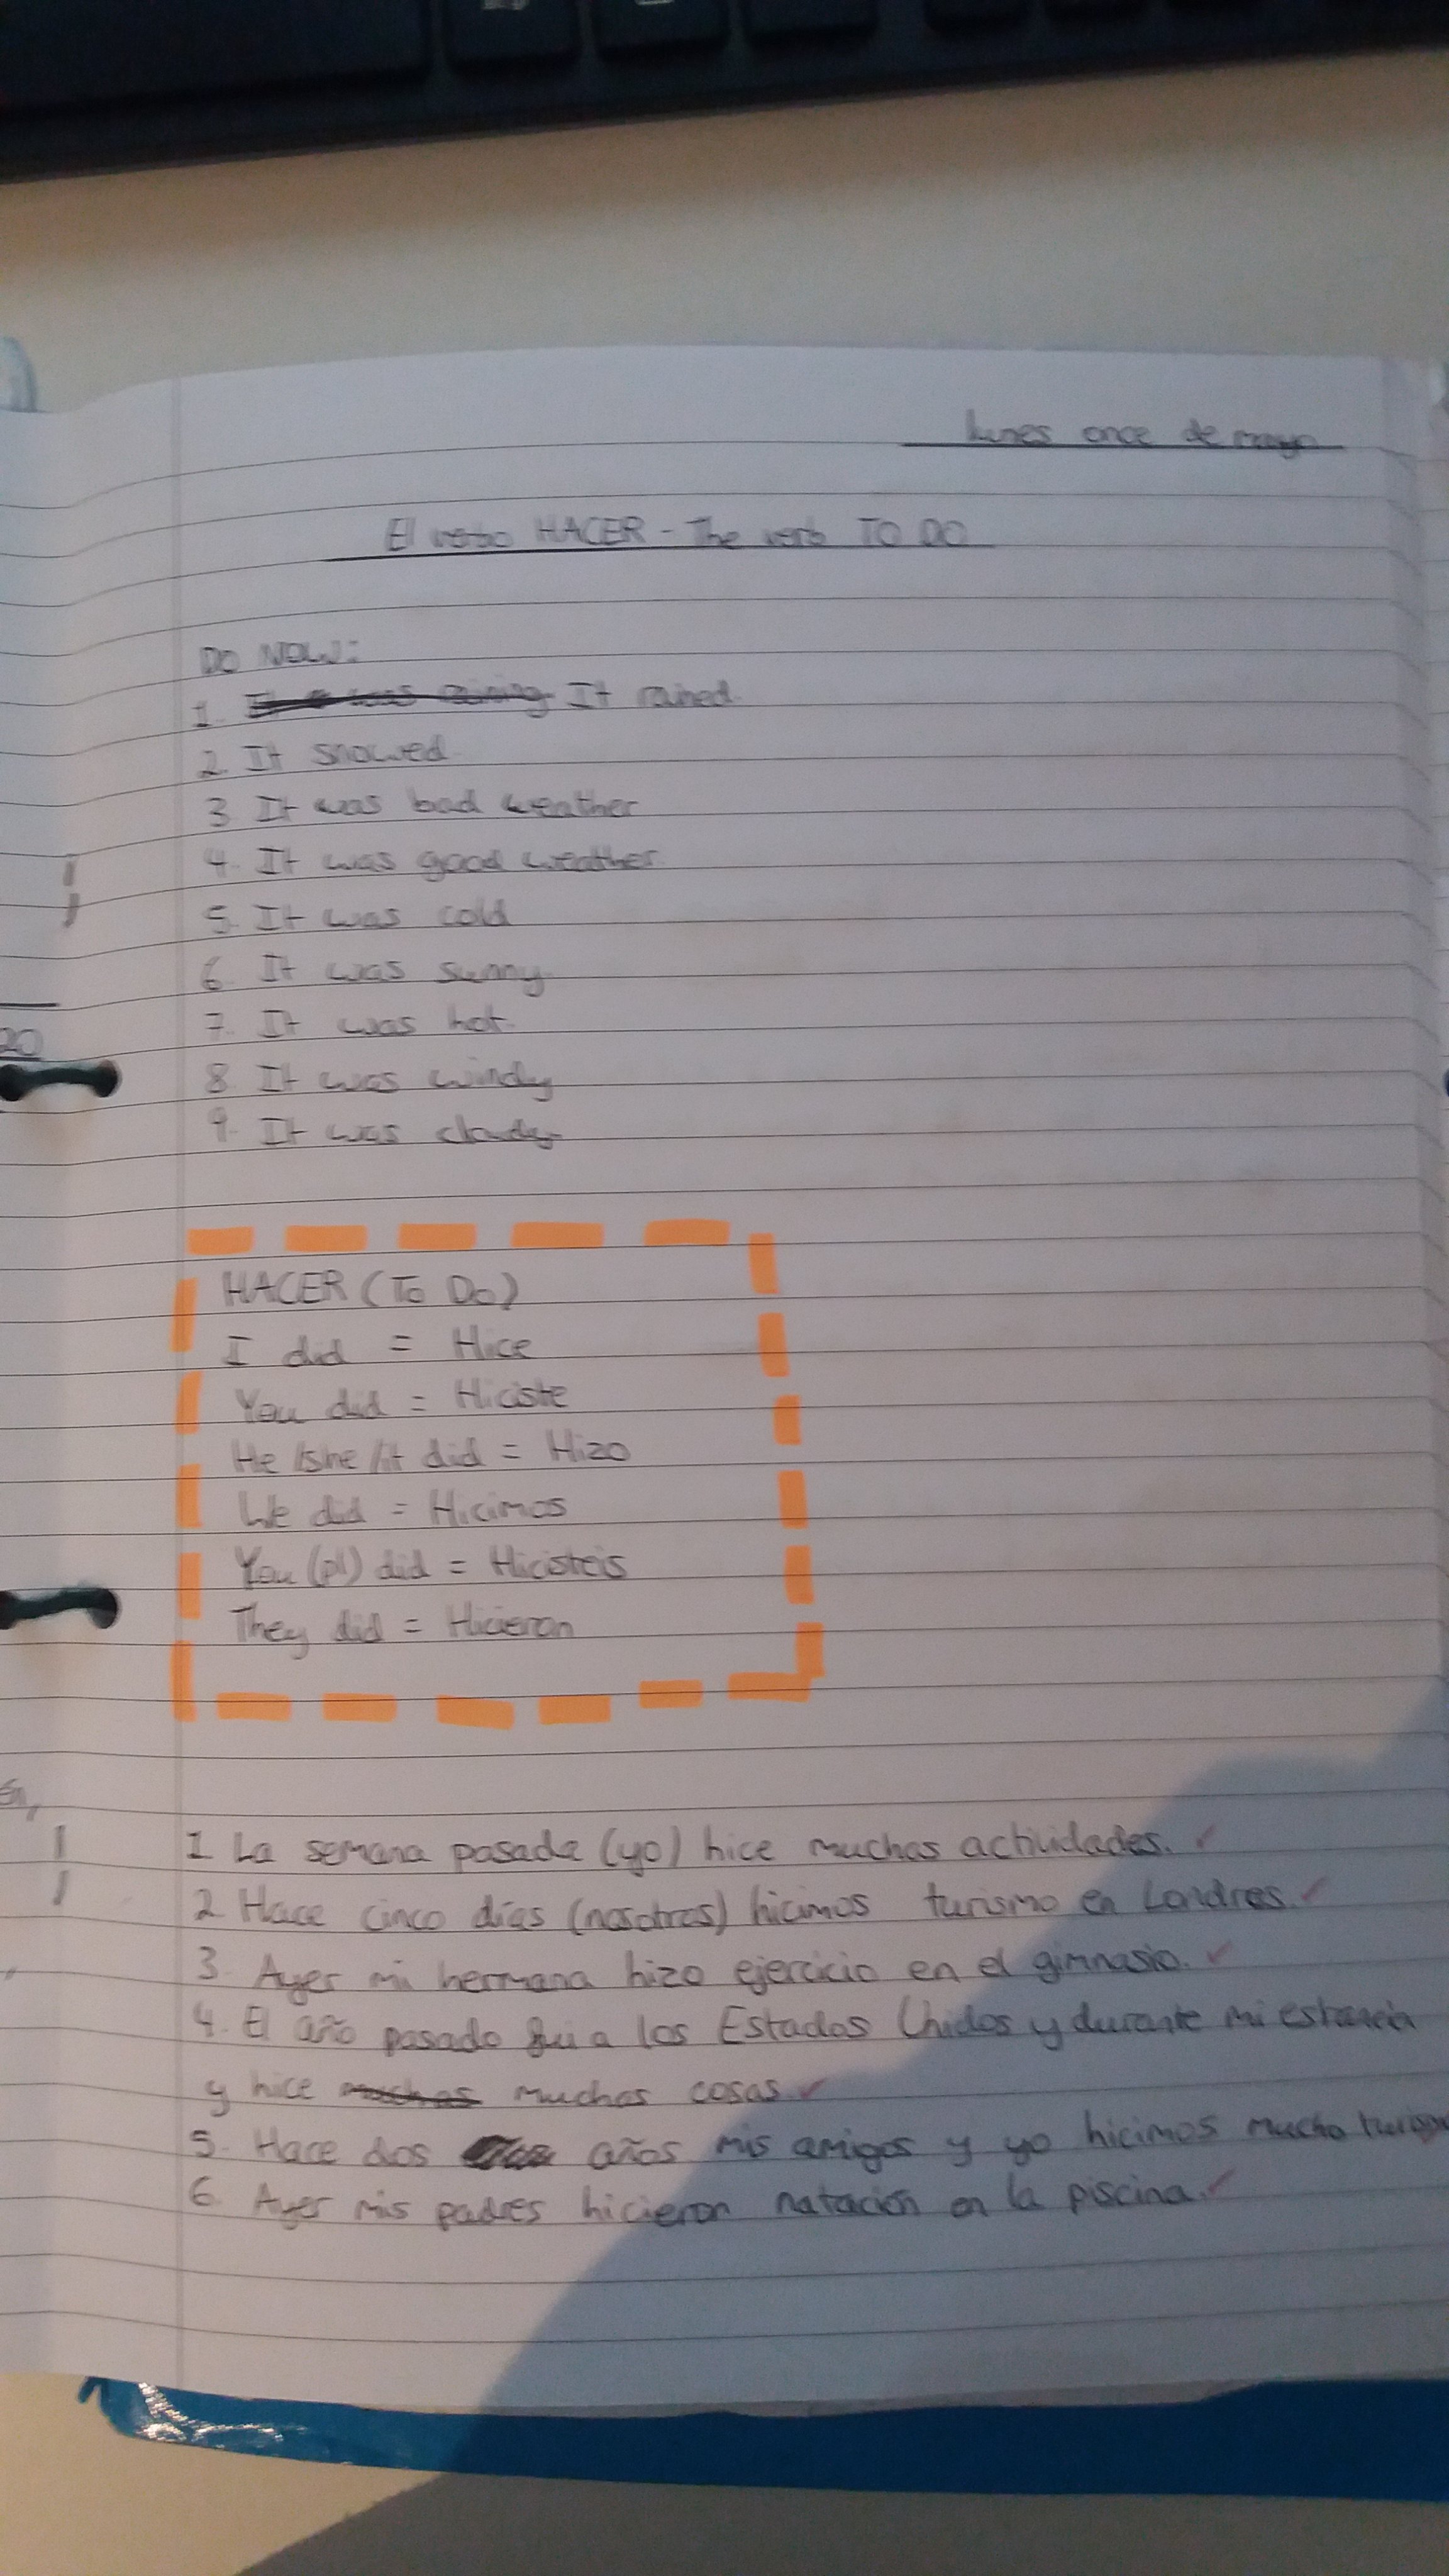 lunes once de mayo
El verbo HACER - The verb TO DO
DO NOW:
1. It rained.
2. It snowed.
3 It was bad weather
4. It was good weather.
5. It was cold
6. It was sunny.
7. It was hot.
8. It was windy
9. It was cloudy
20
HACER (To Do)
I did = Hice
You did = Hiciste
He/she/it did = Hizo
We did = Hicimos
You (pl) did = Hicisteis
They did = Hicieron
1. La semana pasada (yo) hice muchas actividades.
2. Hace cinco días (nosotros) hicimos turismo en Londres.
3. Ayer mi hermana hizo ejercicio en el gimnasio.
4. El año pasado fui a los Estados Unidos y durante mi estancia
y hice muchas cosas
5. Hace dos años mis amigos y yo hicimos mucho
6. Ayer mis padres hicieron natación en la piscina.